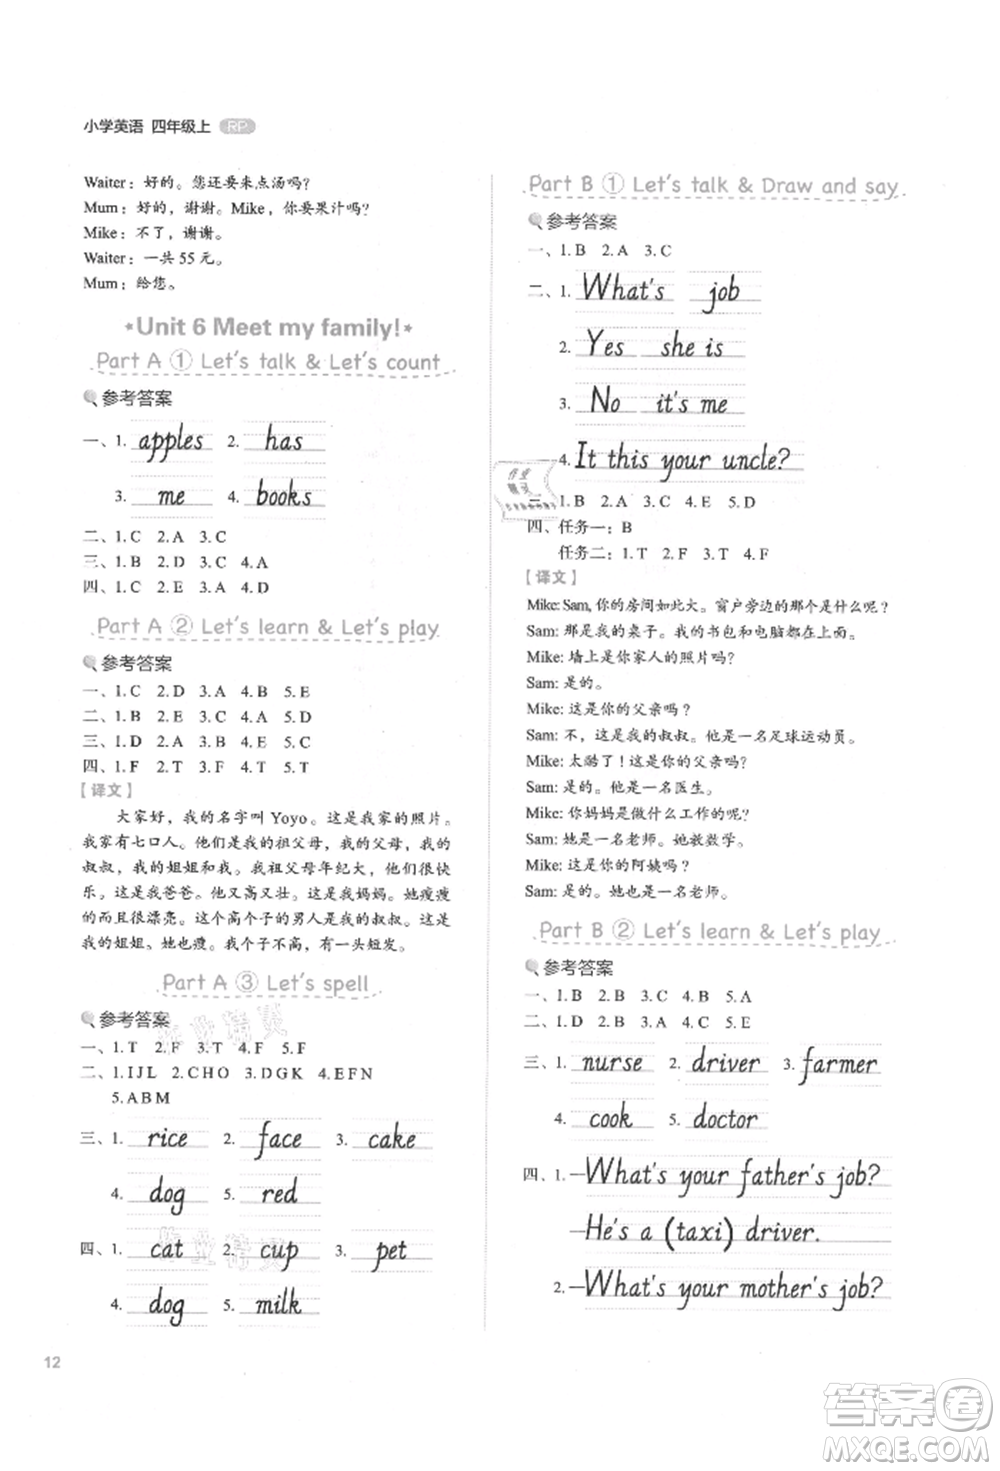 小学英语 四年级上 RP
Waiter：好的。您还要来点汤吗？
Mum：好的，谢谢。Mike，你要果汁吗？
Mike：不了，谢谢。
Waiter：一共 55 元。
Mum：给您。
*Unit 6 Meet my family!*
Part A ① Let's talk & Let's count
参考答案
一、1. apples 2. has
3. me 4. books
二、1. C 2. A 3. C
三、1. B 2. D 3. C 4. A
四、1. C 2. E 3. B 4. A 5. D
Part A ② Let's learn & Let's play
参考答案
一、1. C 2. D 3. A 4. B 5. E
二、1. B 2. E 3. C 4. A 5. D
三、1. D 2. A 3. B 4. C
四、1. F 2. T 3. T 4. F 5. T
【译文】
大家好，我的名字叫 Yoyo。这是我家的照片。
我家有七口人。他们是我的祖父母，我的父母，我的
叔叔，我的姐姐和我。我祖父母年纪大，但他们很快
乐。这是我爸爸。他又高又壮。这是我妈妈。她瘦瘦
的而且很漂亮。这个高个子的男人是我的叔叔。这是
我的姐姐，她也瘦。我个子不高，有一头短发。
Part A ③ Let's spell
参考答案
一、1. T 2. F 3. T 4. F 5. F
二、1. IJL 2. CHO 3. DGK 4. EFN
5. ABM
三、1. rice 2. face 3. cake
4. dog 5. red
四、1. cat 2. cup 3. pet
4. dog 5. milk
12
Part B ① Let's talk & Draw and say
参考答案
一、1. B 2. A 3. C
二、1. What's job
2. Yes she is
3. No it's me
4. It this your uncle?
三、1. B 2. A 3. C 4. E 5. D
四、任务一：B
任务二：1. T 2. F 3. T 4. F
【译文】
Mike: Sam, 你的房间如此大。窗户旁边的那个是什么呢？
Sam: 那是我的桌子。我的书包和电脑都在上面。
Mike: 墙上是你家人的照片吗？
Sam: 是的。
Mike: 这是你的父亲吗？
Sam: 不，这是我的叔叔。他是一名足球运动员。
Mike: 太酷了！这是你的父亲吗？
Sam: 是的。他是一名医生。
Mike: 你妈妈是做什么工作的呢？
Sam: 她是一名老师。她教数学。
Mike: 这是你的阿姨吗？
Sam: 是的。她也是一名老师。
Part B ② Let's learn & Let's play
参考答案
一、1. B 2. B 3. C 4. B 5. A
二、1. D 2. A 3. B 4. C 5. E
三、1. nurse 2. driver 3. farmer
4. cook 5. doctor
四、1. —What's your father's job?
—He's a (taxi) driver.
2. —What's your mother's job?
答案圈
MXQE.COM